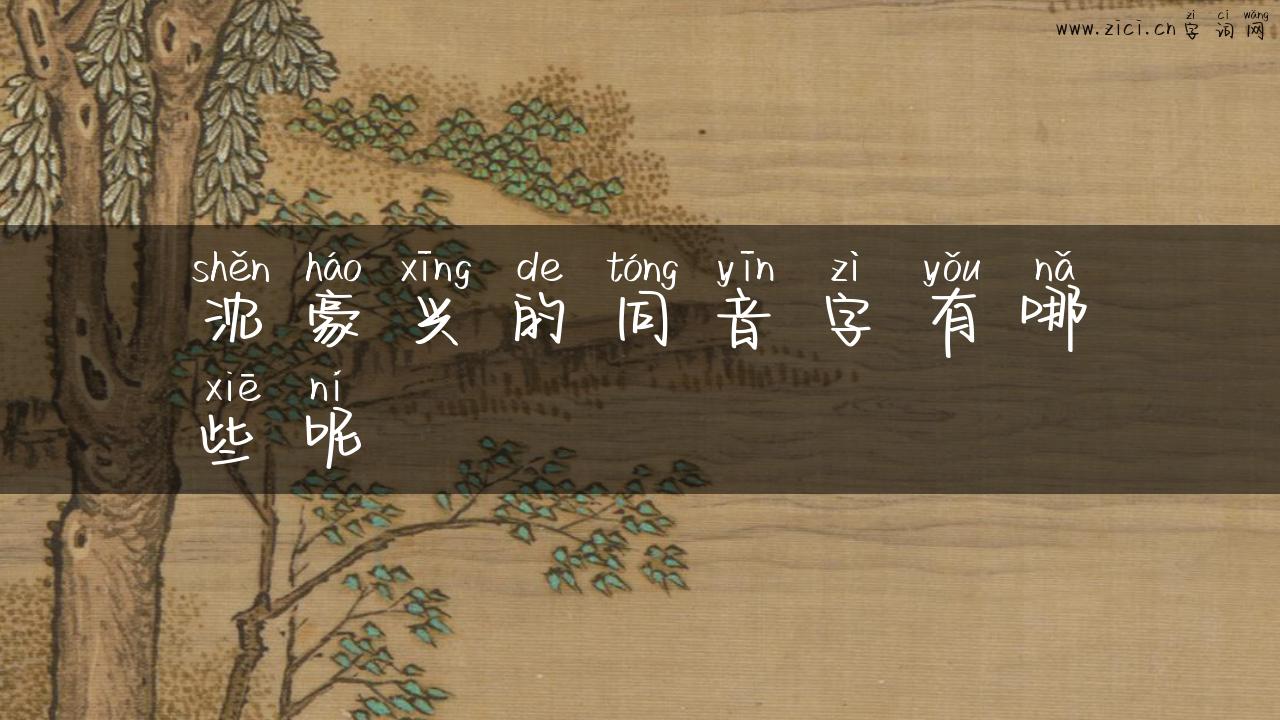 zì cí wǎng
www.zici.cn 字词网
shěn háo xīng de tóng yīn zì yǒu nǎ
沈豪兴的同音字有哪
xiē ní
些呢